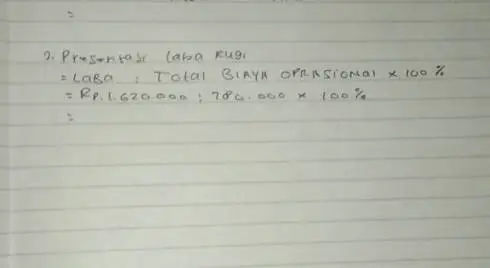 :
2. Presentasi laba Rugi
= LABA : TOtal BIAYA OPRASIONAl × 100 %
= Rp. 1.620.000 : 780.000 × 100 %
: